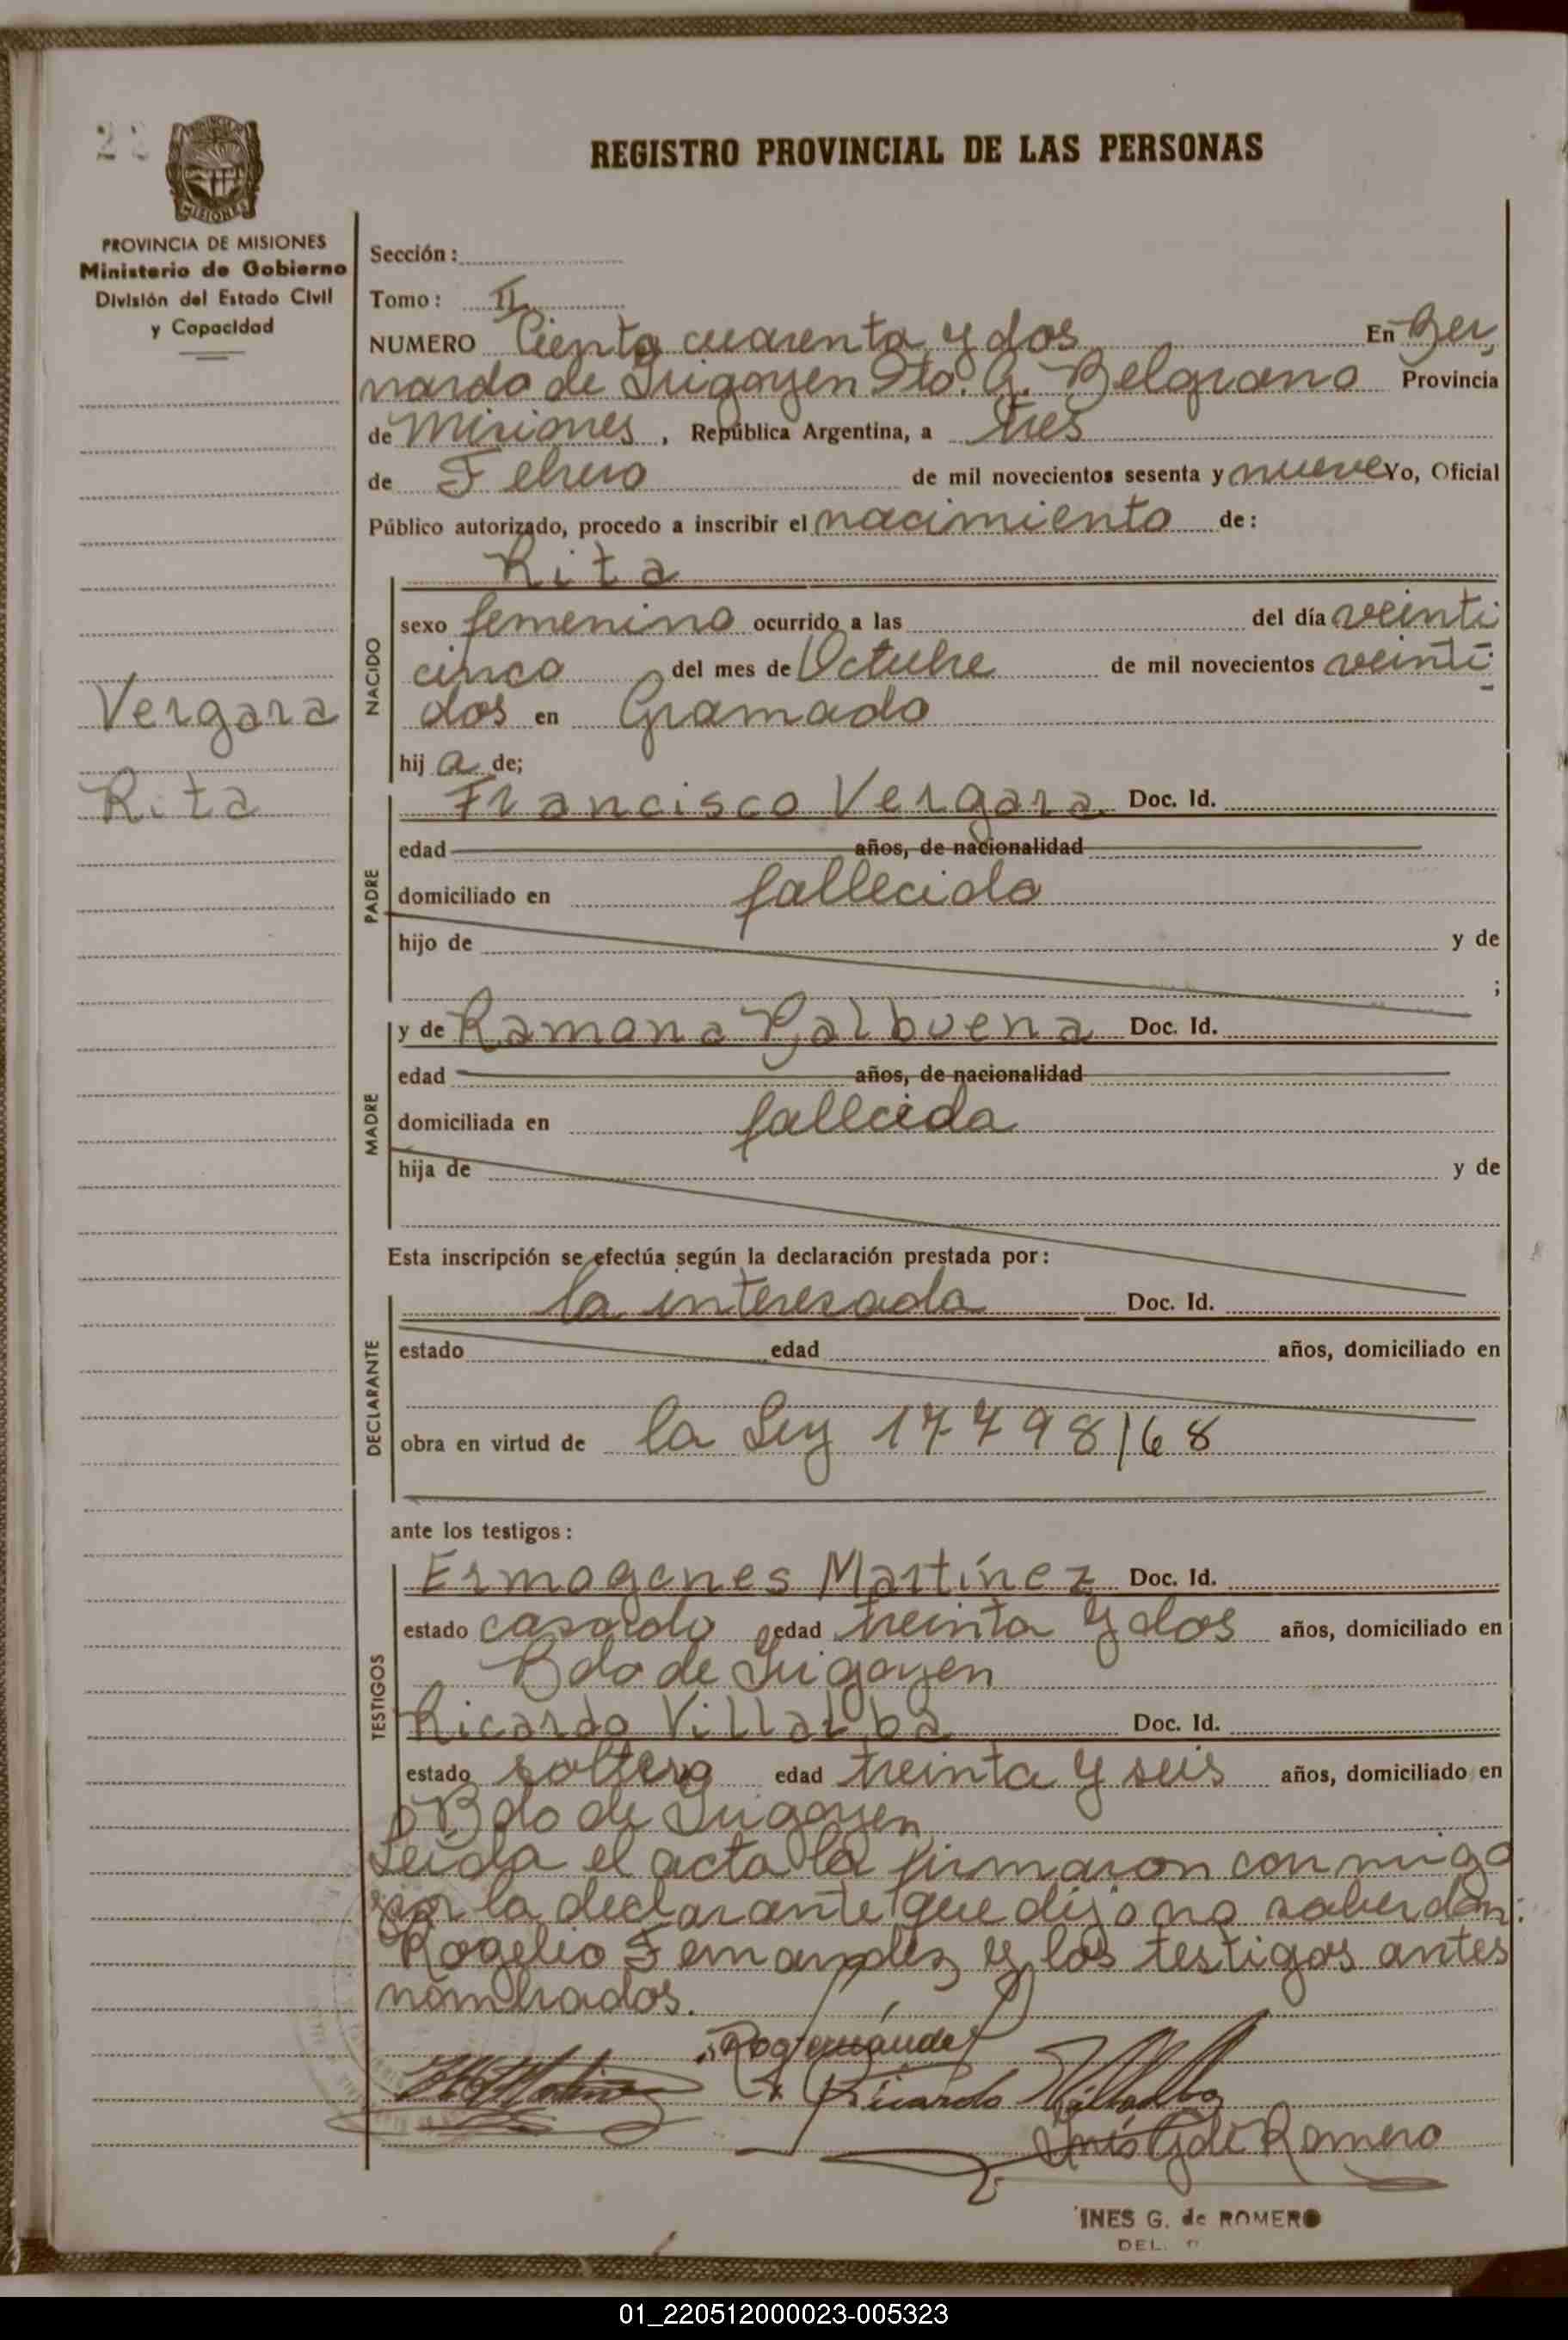 REGISTRO PROVINCIAL DE LAS PERSONAS
MISIONES
PROVINCIA DE MISIONES
Ministerio de Gobierno
División del Estado Civil
y Capacidad
Vergara
Rita
Sección:
Tomo: II
NUMERO Ciento cuarenta y dos En Ber,
nardo de Irigoyen Dto. G. Belgrano Provincia
de Misiones, República Argentina, a tres
de Febrero de mil novecientos sesenta y nueve Yo, Oficial
Público autorizado, procedo a inscribir el nacimiento de:
Rita
NACIDO
sexo femenino ocurrido a las del día veinti
cinco del mes de Octubre de mil novecientos veinti
dos en Gramado
hija de;
PADRE
Francisco Vergara Doc. Id.
edad años, de nacionalidad
domiciliado en fallecido
hijo de y de
;
MADRE
y de Ramona Balbuena Doc. Id.
edad años, de nacionalidad
domiciliada en fallecida
hija de y de
Esta inscripción se efectúa según la declaración prestada por:
DECLARANTE
la interesada Doc. Id.
estado edad años, domiciliado en
obra en virtud de la Ley 17798/68
ante los testigos:
TESTIGOS
Ermogenes Martínez Doc. Id.
estado casado edad treinta y dos años, domiciliado en
Bdo de Irigoyen
Ricardo Villalba Doc. Id.
estado soltero edad treinta y seis años, domiciliado en
Bdo de Irigoyen
Leida el acta la firmaron conmigo
por la declarante que dijo no saber don:
Rogelio Fernandez y los testigos antes
nombrados.
Ricardo Villalba
Inés G de Romero
INES G. de ROMERO
DEL.
01_220512000023-005323